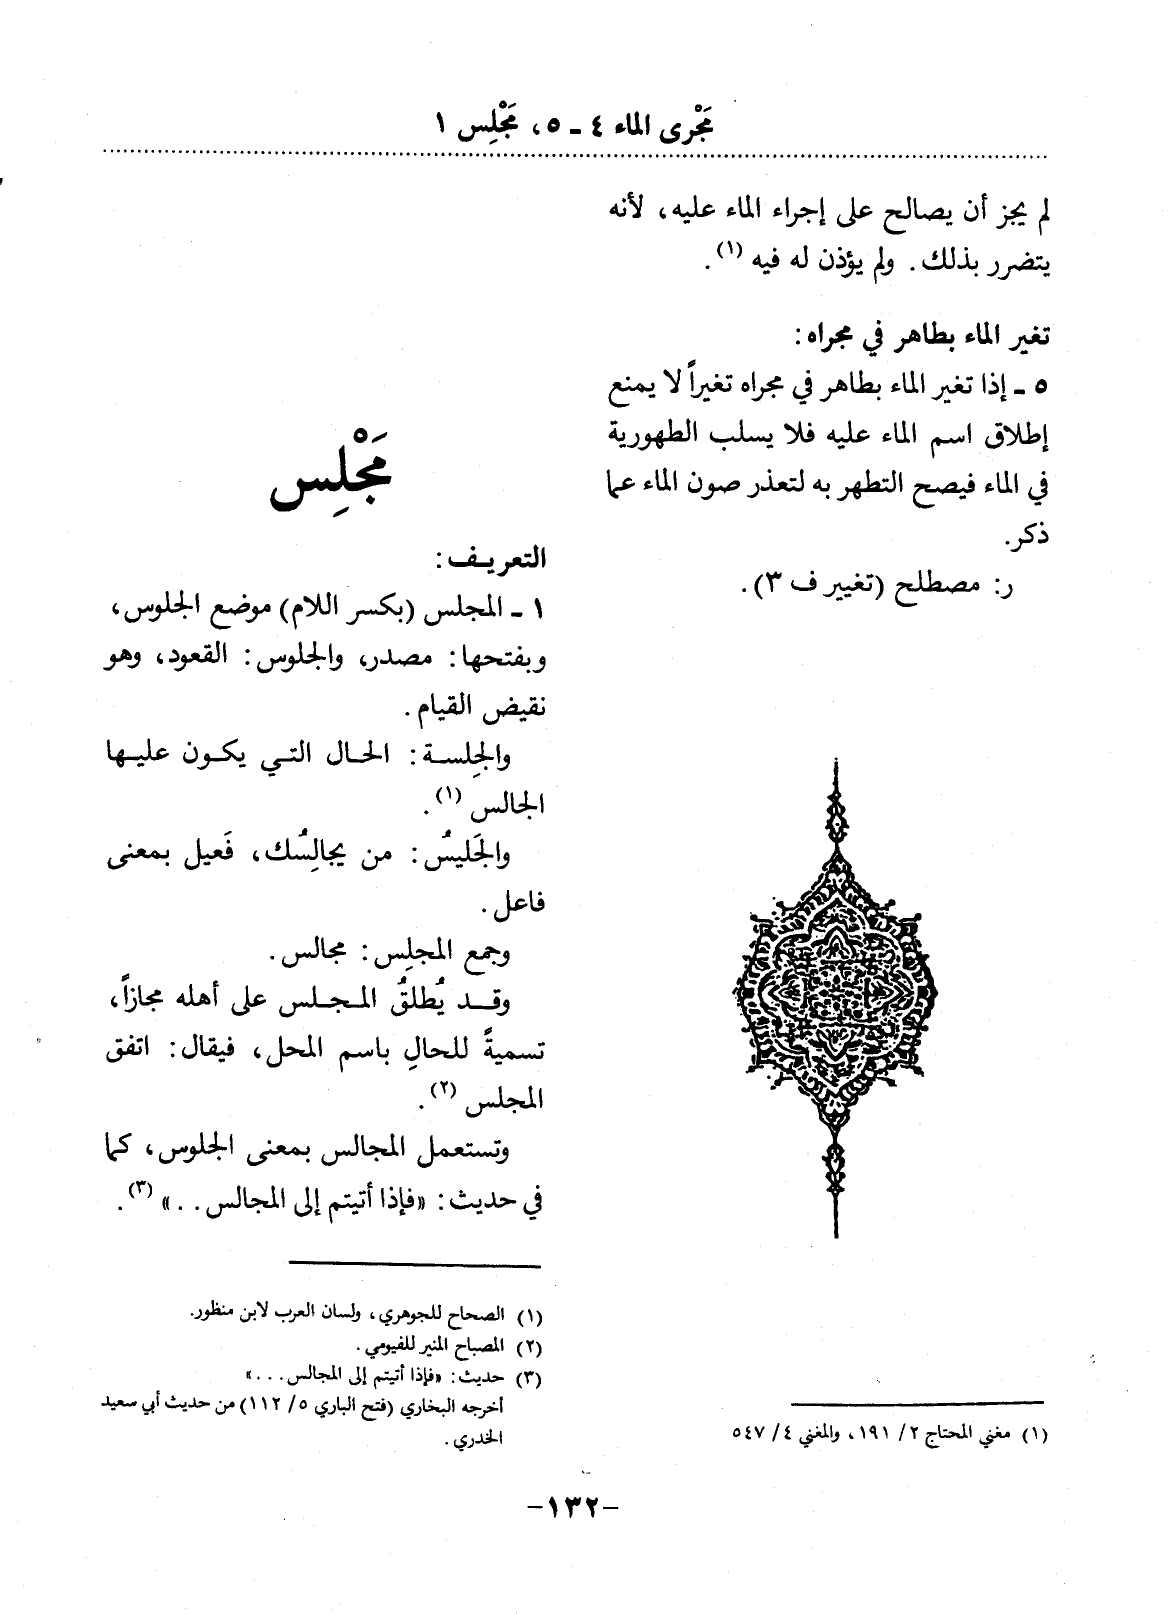 مَجْرى الماء ٤ ـ ٥، مَجْلِس ١
لم يجز أن يصالح على إجراء الماء عليه، لأنه
يتضرر بذلك. ولم يؤذن له فيه (١).
تغير الماء بطاهر في مجراه:
٥ ـ إذا تغير الماء بطاهر في مجراه تغيراً لا يمنع
إطلاق اسم الماء عليه فلا يسلب الطهورية
في الماء فيصح التطهر به لتعذر صون الماء عما
ذكر.
ر: مصطلح (تغيير ف ٣).
(١) مغني المحتاج ٢/ ١٩١، والمغني ٤/ ٥٤٧
مَجْلِس
التعريف:
١ ـ المجلس (بكسر اللام) موضع الجلوس،
وبفتحها: مصدر، والجلوس: القعود، وهو
نقيض القيام.
والجِلسة: الحال التي يكون عليها
الجالس (١).
والجَليسُ: من يجالِسُك، فَعيل بمعنى
فاعل.
وجمع المجلِس: مجالس.
وقد يُطلقُ المجلس على أهله مجازاً،
تسميةً للحالِ باسم المحل، فيقال: اتفق
المجلس (٢).
وتستعمل المجالس بمعنى الجلوس، كما
في حديث: «فإذا أتيتم إلى المجالس..» (٣).
(١) الصحاح للجوهري، ولسان العرب لابن منظور.
(٢) المصباح المنير للفيومي.
(٣) حديث: «فإذا أتيتم إلى المجالس...»
أخرجه البخاري (فتح الباري ٥/ ١١٢) من حديث أبي سعيد
الخدري.
-١٣٢-